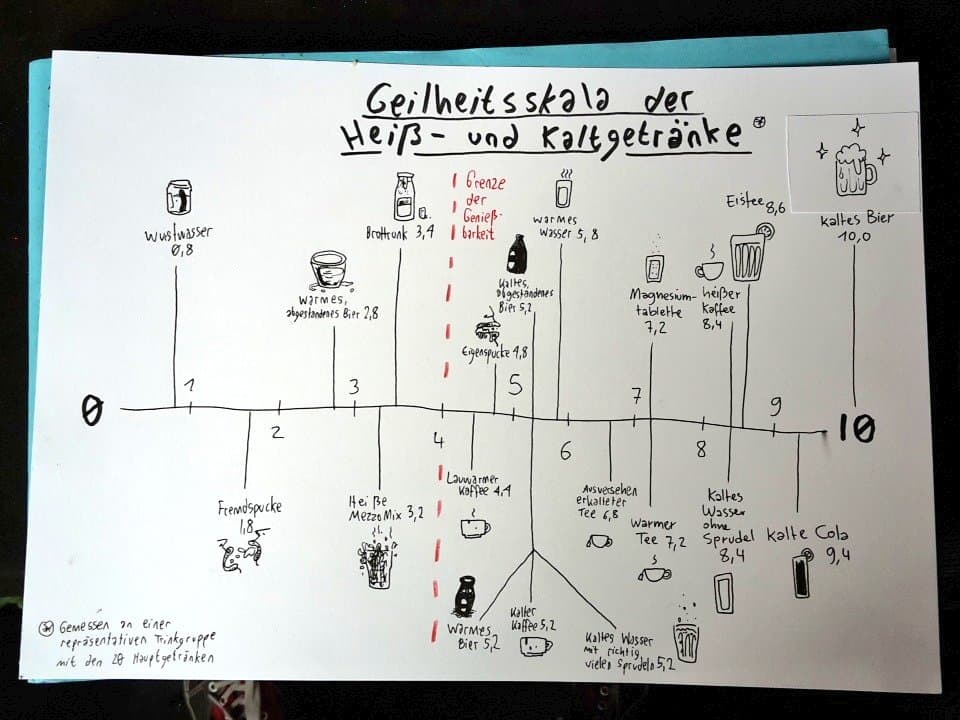 Geilheitsskala der
Heiß- und Kaltgetränke*
Wustwasser
0,8
Warmes,
abgestandenes Bier 2,8
Brottrunk 3,4
Grenze
der
Genieß-
barkeit
Kaltes,
abgestandenes
Bier 5,2
Eigenspucke 4,8
Warmes
Wasser 5,8
Magnesium-
tablette
7,2
heißer
Kaffee
8,4
Eistee 8,6
Kaltes Bier
10,0
0
1
2
3
4
5
6
7
8
9
10
Fremdspucke
1,8
Heiße
MezzoMix 3,2
Lauwarmer
Kaffee 4,4
Warmes
Bier 5,2
Kalter
Kaffee 5,2
Kaltes Wasser
mit richtig
vielen sprudeln 5,2
Ausversehen
erkalteter
Tee 6,8
Warmer
Tee 7,2
Kaltes
Wasser
ohne
Sprudel
8,4
Kalte Cola
9,4
* Gemessen an einer
repräsentativen Trinkgruppe
mit den 20 Hauptgetränken